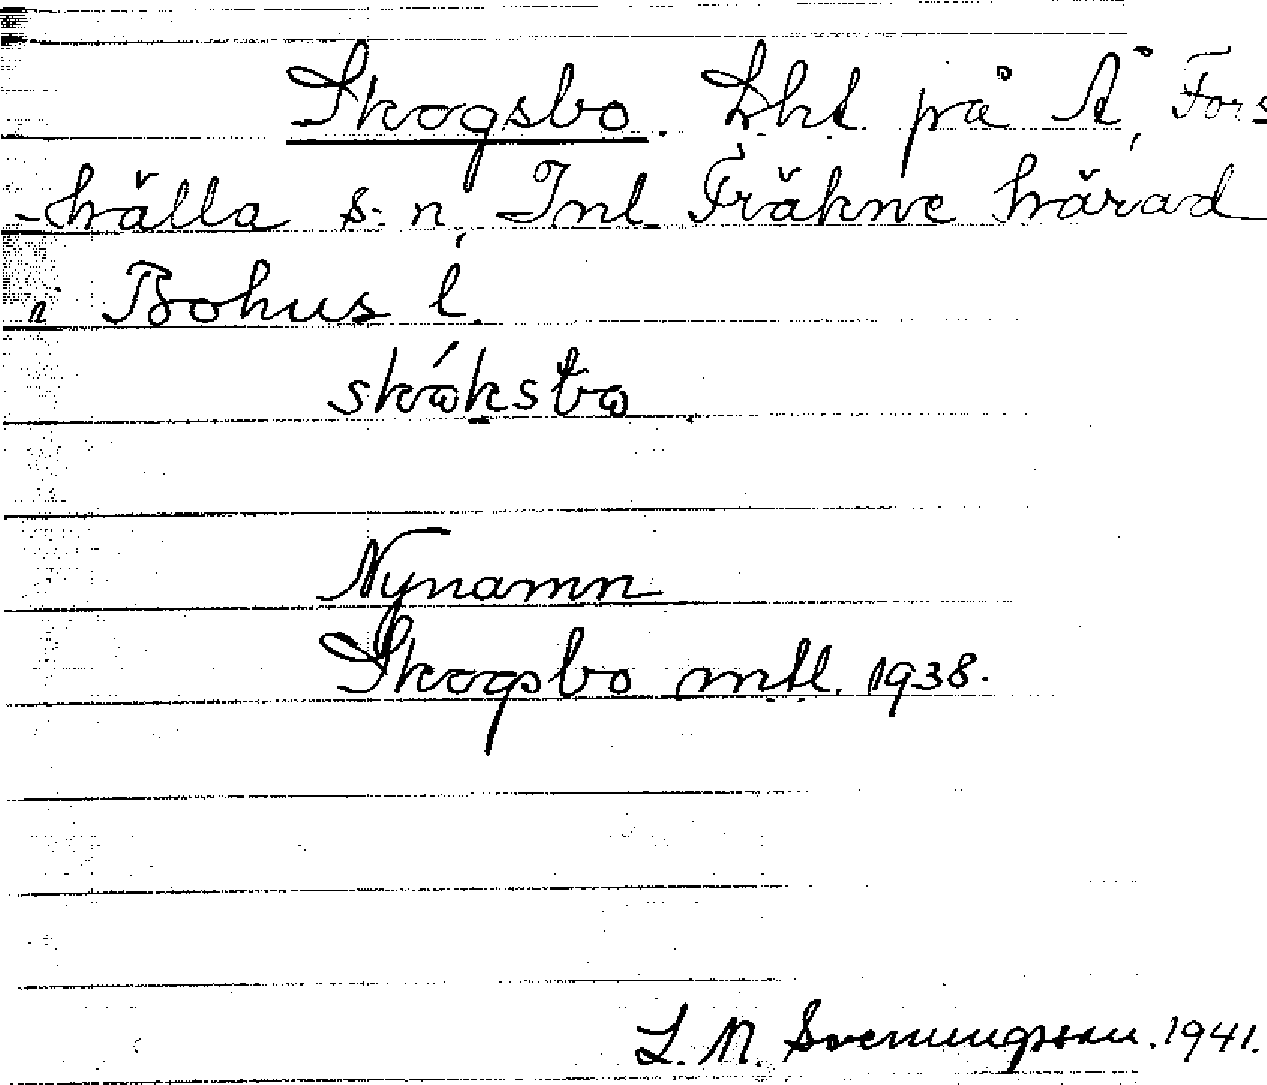 Skogsbo. Lht på Å, Fors
-hälla s. n, Inl. Fräkne härad
i Bohus l.
skóksbo
Nynamn
Skogsbo mtl. 1938.
L. N. Svenungsson. 1941.